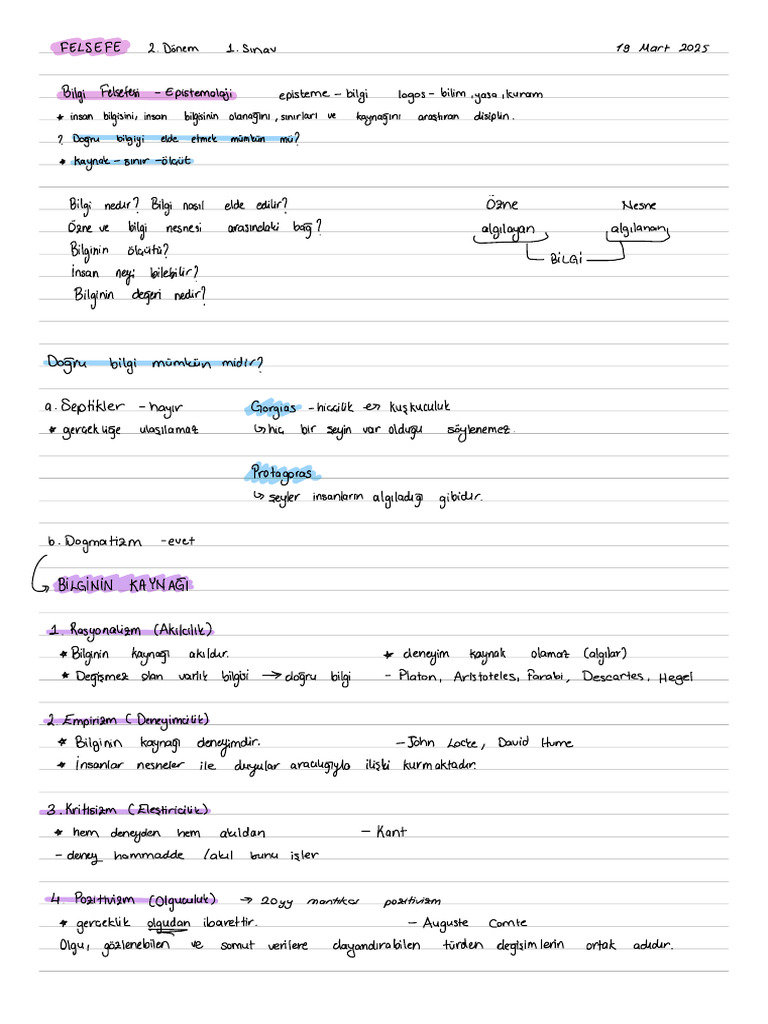 FELSEFE 2. Dönem 1. Sınav 18 Mart 2025
Bilgi Felsefesi - Epistemoloji episteme - bilgi logos - bilim, yasa, kuram
* insan bilgisini, insan bilgisinin olanağını, sınırları ve kaynağını araştıran disiplin.
? Doğru bilgiyi elde etmek mümkün mü?
* kaynak - sınır - ölçüt
Bilgi nedir? Bilgi nasıl elde edilir?
Özne ve bilgi nesnesi arasındaki bağ?
Bilginin ölçütü?
İnsan neyi bilebilir?
Bilginin değeri nedir?
Özne Nesne
algılayan algılanan
BİLGİ
Doğru bilgi mümkün midir?
a. Septikler - hayır
* gerçekliğe ulaşılamaz
Gorgias - hiccilik ↔ kuşkuculuk
↳ hiç bir şeyin var olduğu söylenemez.
Protagoras
↳ şeyler insanların algıladığı gibidir.
b. Dogmatizm - evet
BİLGİNİN KAYNAĞI
1. Rasyonalizm (Akılcılık)
* Bilginin kaynağı akıldır. * deneyim kaynak olamaz (algılar)
* Değişmez olan varlık bilgisi → doğru bilgi - Platon, Aristoteles, Farabi, Descartes, Hegel
2. Empirizm (Deneyimcilik)
* Bilginin kaynağı deneyimdir. - John Locke, David Hume
* İnsanlar nesneler ile duyular aracılığıyla ilişki kurmaktadır.
3. Kritisizm (Eleştiricilik)
* hem deneyden hem akıldan - Kant
- deney hammadde / akıl bunu işler
4. Pozitivizm (Olguculuk) → 20yy mantıkçı pozitivizm
* gerçeklik olgudan ibarettir. - Auguste Comte
Olgu, gözlenebilen ve somut verilere dayandırabilen türden değişimlerin ortak adıdır.